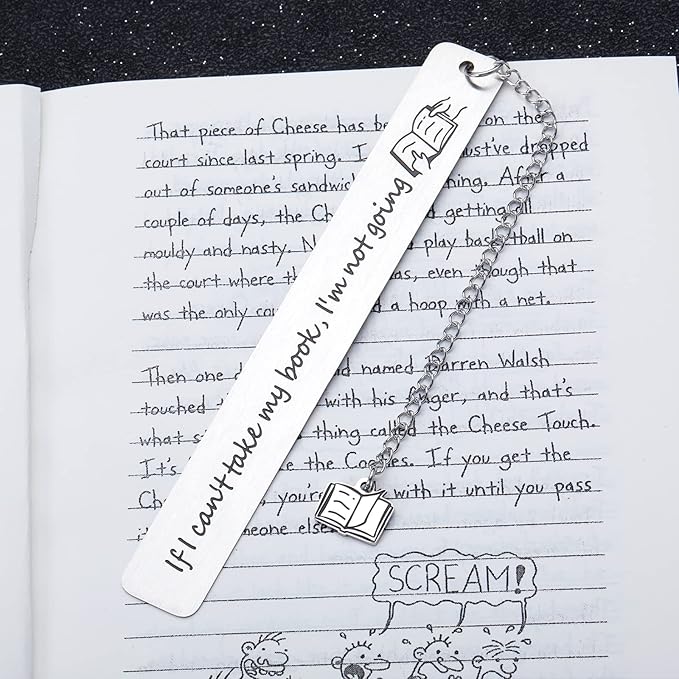 If I can't take my book, I'm not going
That piece of Cheese has on the
court since last spring. I must've dropped
out of someone's sandwic
couple of days, the Ch getting all
mouldy and nasty. N play basketball on
the court where th as, even though that
was the only cou a hoop with a net.
Then one d d named Darren Walsh
touched with his finger, and that's
what s thing called the Cheese Touch.
It's e the Cooties. If you get the
Ch you're with it until you pass
eone else.
SCREAM!